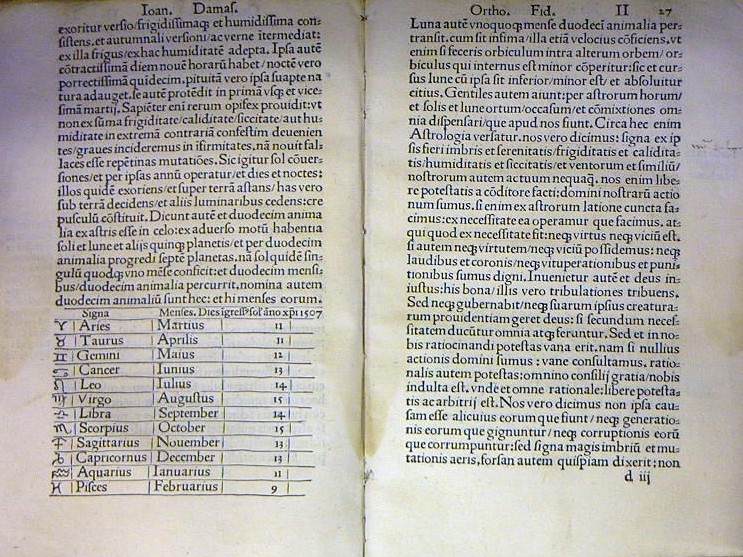 Ioan. Damas.
exoritur versio/frigidissimaq; et humidissima con-
sistens. et autumnali versioni/ac verne itermediat:
ex illa frigus/ex hac humiditatē adepta. Ipsa autē
cōtractissimā diem nouē horarū habet/noctē vero
porrectissimā quidecim. pituitā vero ipsa suapte na
tura adauget. se autē protēdit in primā vsq; et vice-
simā martij. Sapiēter eni rerum opifex prouidit: vt
non ex sūma frigiditate/caliditate/siccitate/aut hu-
miditate in extremā contrariā confestim deuenien
tes/graues incideremus in ifirmitates. nā nouit fal-
laces esse repētinas mutatiōes. Sic igitur sol cōuer-
siones/et per ipsas annū operatur/et dies et noctes:
illos quidē exoriens/et super terrā astans/has vero
sub terrā decidens/et aliis luminaribus cedens: cre
pusculū cōstituit. Dicunt autē et duodecim anima
lia ex astris esse in celo: ex aduerso motū habentia
soli et lune et alijs quinq; planetis/et per duodecim
animalia progredi septē planetas. nā sol quidē sin-
gulū quodq; vno mēse conficit: et duodecim mensi-
bus/duodecim animalia percurrit. nomina autem
duodecim animaliū sunt hec: et hi menses eorum.
Signa Menses. Dies igressꝰ sol' āno xp̄i 1507
♈ Aries Martius 11
♉ Taurus Aprilis 11
♊ Gemini Maius 12
♋ Cancer Iunius 13
♌ Leo Iulius 14
♍ Virgo Augustus 15
♎ Libra September 14
♏ Scorpius October 15
♐ Sagittarius Nouember 13
♑ Capricornus December 13
♒ Aquarius Ianuarius 11
♓ Pisces Februarius 9
Ortho. Fid. II 27
Luna autē vnoquoq; mense duodeci animalia per-
transit. cum sit infima/illa etiā velocius cōficiens. vt
enim si feceris orbiculum intra alterum orbem/or-
biculus qui internus est minor cōperitur: sic et cur-
sus lune cū ipsa sit inferior/minor est/et absoluitur
citius. Gentiles autem aiunt: per astrorum horum/
et solis et lune ortum/occasum/et cōmixtiones om-
nia dispensari/que apud nos fiunt. Circa hec enim
Astrologia versatur. nos vero dicimus: signa ex ip
sis fieri imbris et serenitatis/frigiditatis et calidita-
tis/humiditatis et siccitatis/et ventorum et similiū/
nostrorum autem actuum nequaq̄. nos enim libe-
re potestatis a cōditore facti: domini nostrarū actio
num sumus. si enim ex astrorum latione cuncta fa-
cimus: ex necessitate ea operamur que facimus. at-
qui quod ex necessitate fit: neq; virtus neq; viciū est.
si autem neq; virtutem/neq; viciū possidemus: neq;
laudibus et coronis/neq; vituperationibus et puni-
tionibus sumus digni. Inuenietur autē et deus in-
iustus: his bona/illis vero tribulationes tribuens.
Sed neq; gubernabit/neq; suarum ipsius creatura-
rum prouidentiam geret deus: si secundum neces-
sitatem ducūtur omnia atq; feruntur. Sed et in no-
bis ratiocinandi potestas vana erit. nam si nullius
actionis domini sumus: vane consultamus. ratio-
nalis autem potestas: omnino consilij gratia/nobis
indulta est. vnde et omne rationale: libere potesta-
tis ac arbitrij est. Nos vero dicimus non ipsa cau-
sam esse alicuius eorum que fiunt/neq; generatio-
nis eorum que gignuntur/neq; corruptionis eorū
que corrumpuntur: sed signa magis imbriū et mu-
tationis aeris. forsan autem quispiam dixerit: non
d iij